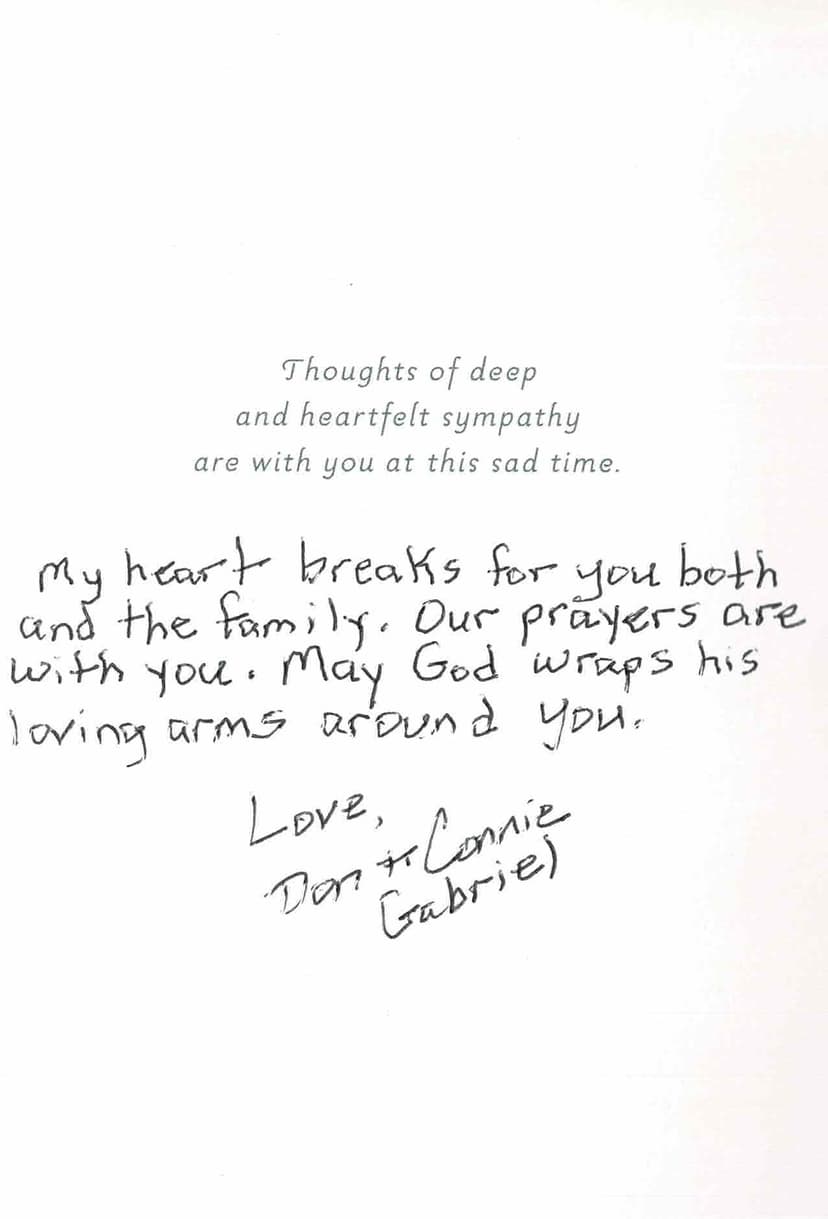 Thoughts of deep
and heartfelt sympathy
are with you at this sad time.
My heart breaks for you both
and the family. Our prayers are
with you. May God wraps his
loving arms around you.
Love,
Don + Connie
Gabriel